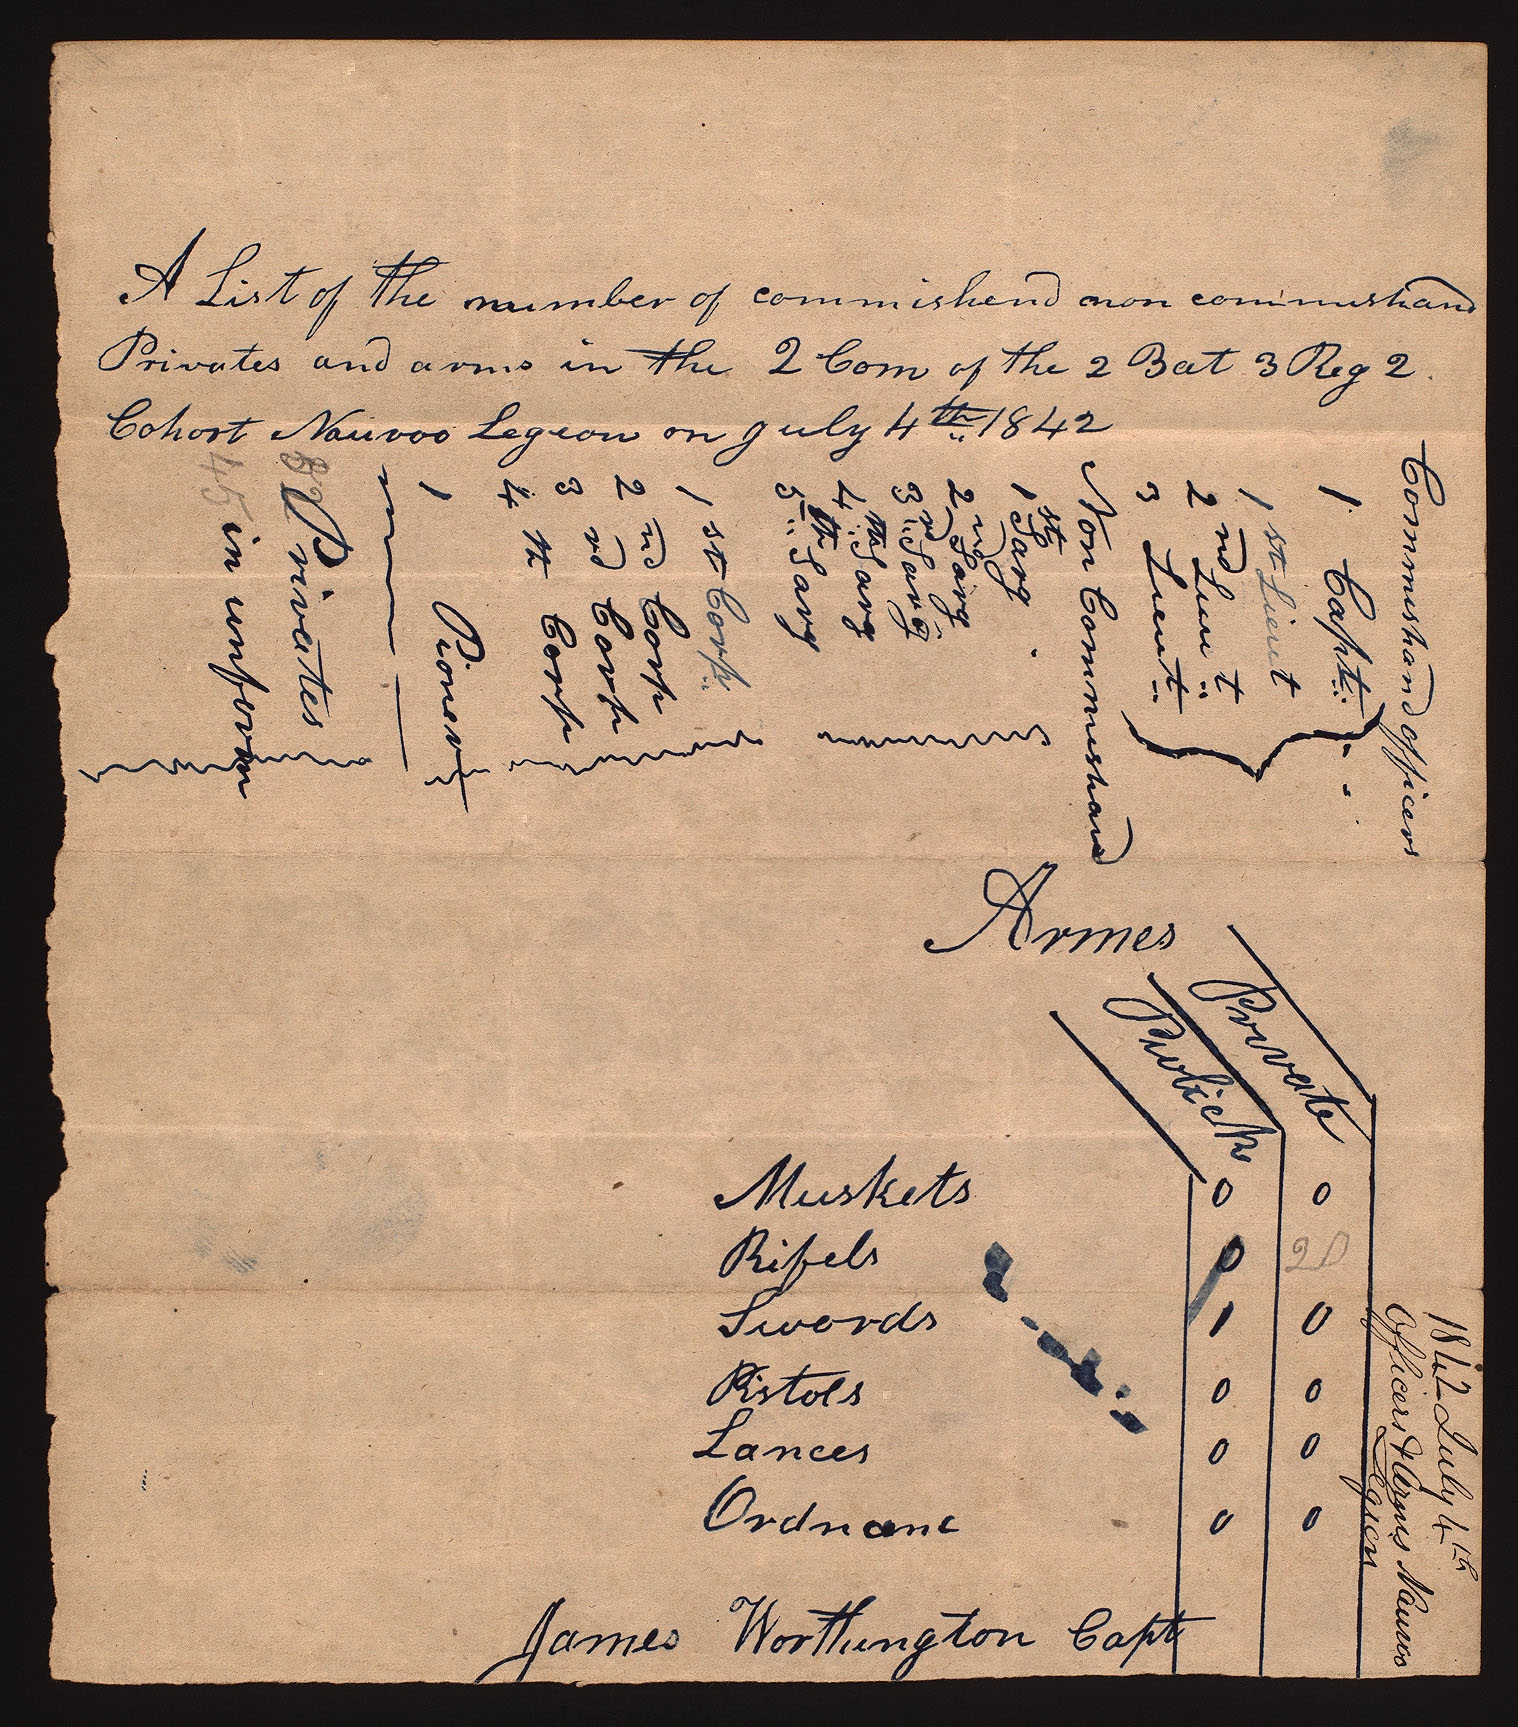 A List of the number of commishend non commishand
Privates and arms in the 2 Com of the 2 Bat 3 Reg 2
Cohort Nauvoo Legeon on July 4th 1842
Commishand officers
1 Capt
1 st Lieut
2 nd Lieut
3 Lieut
Non Commishand
1 st Sarg
2 nd Sarg
3 rd Sarg
4 th Sarg
5 th Sarg
1 st Corp
2 nd Corp
3 rd Corp
4 th Corp
1 Pioneer
82 Privates
45 in unform
Armes
Private
Publick
Muskets 0 0
Rifels 0 20
Swords 1 0
Pistols 0 0
Lances 0 0
Ordnanc 0 0
James Worthington Capt
1842 July 4th
Officers & Arms Nauvoo
Legion